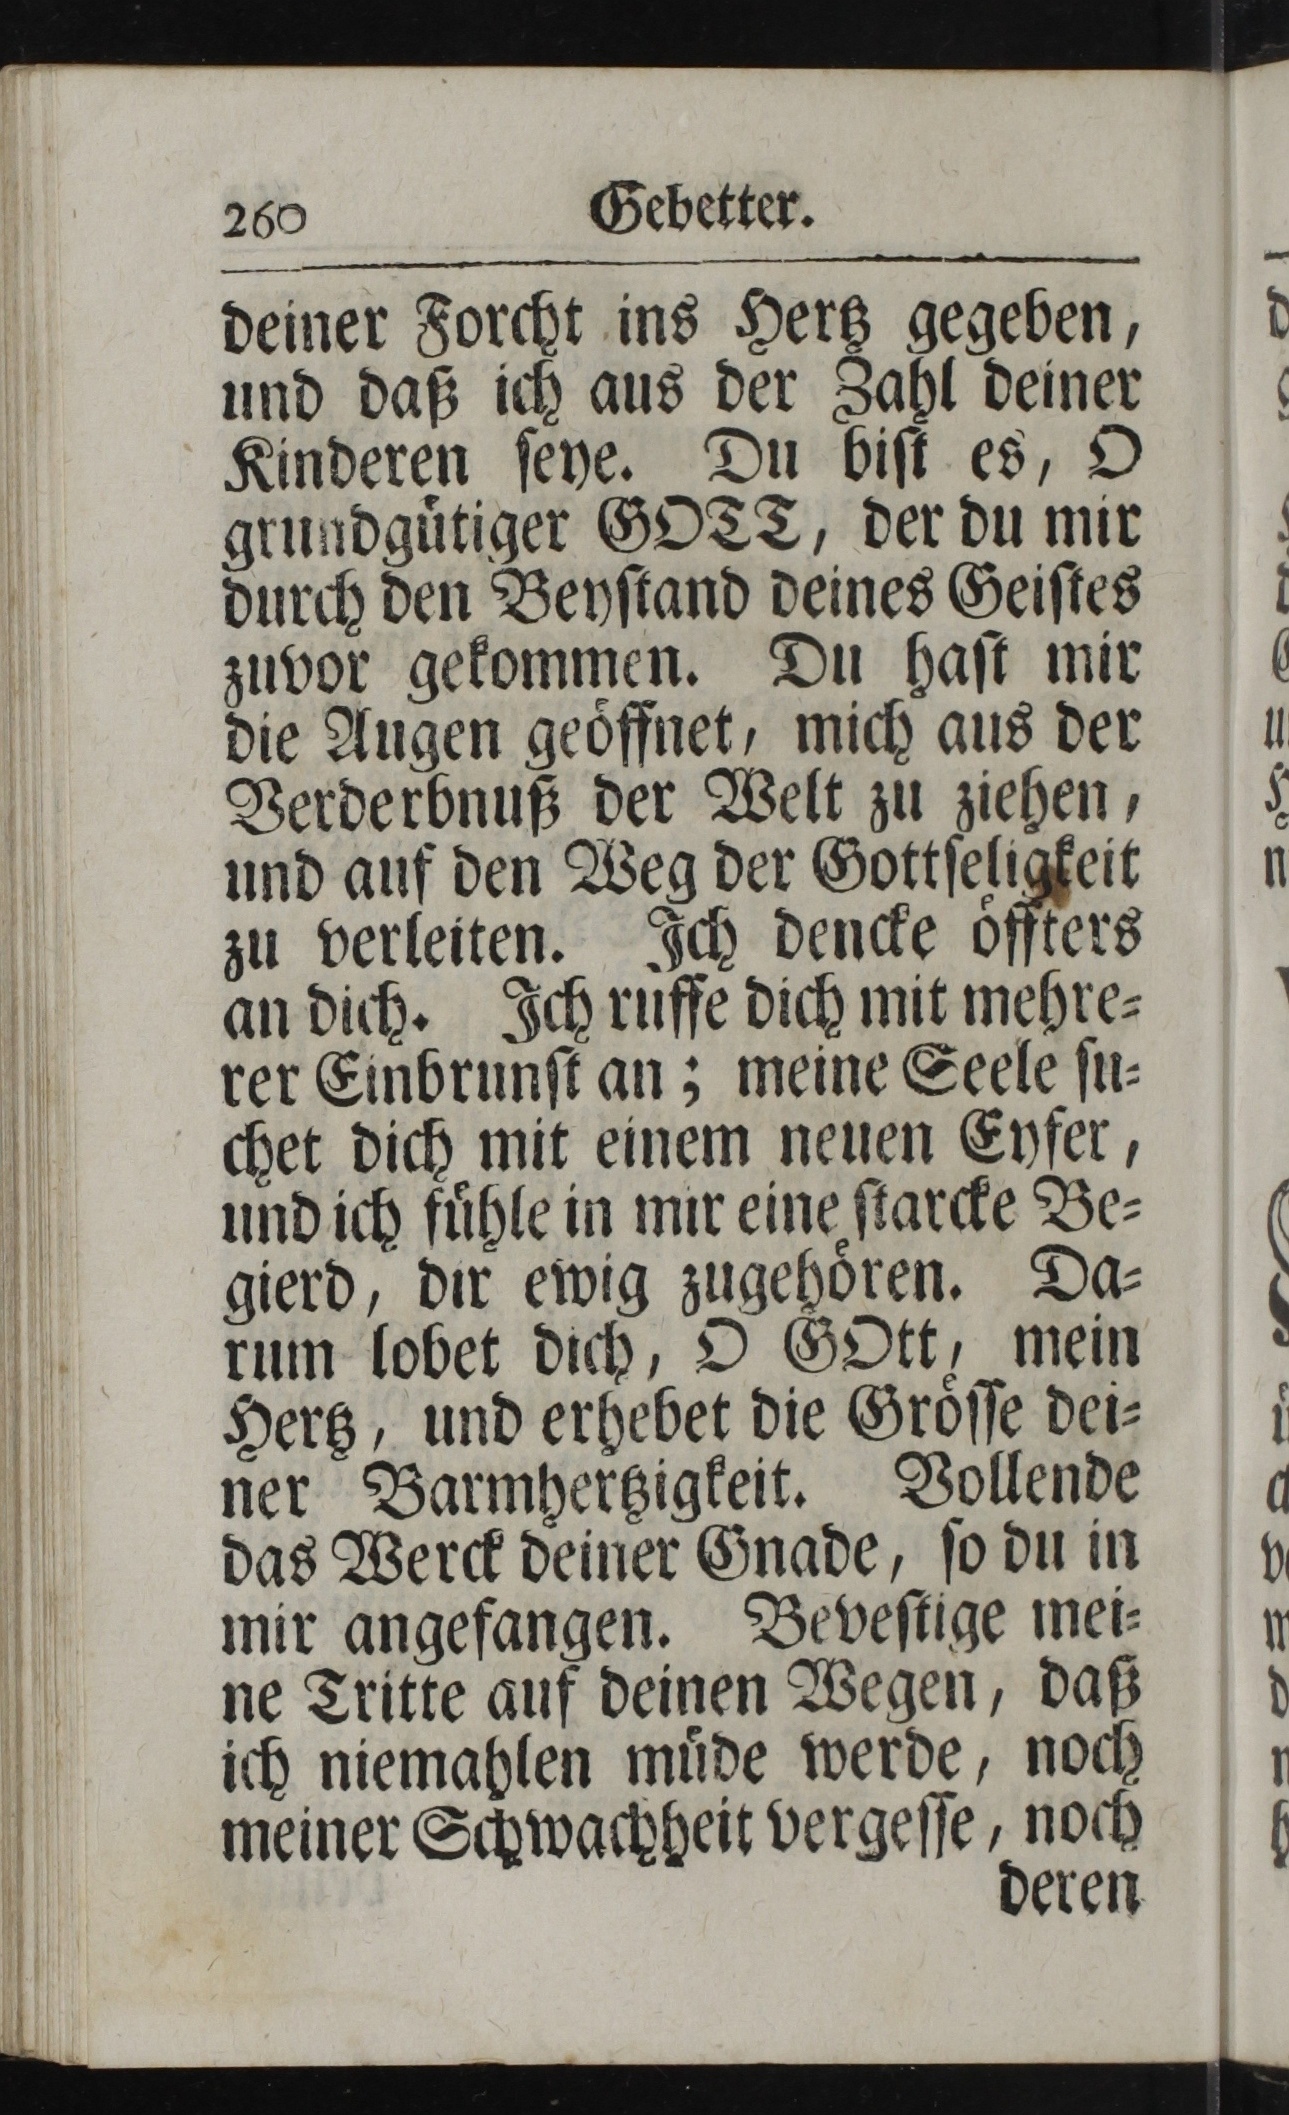 260 Gebetter.
deiner Forcht ins Hertz gegeben,
und daß ich aus der Zahl deiner
Kinderen seye. Du bist es, O
grundgütiger GOTT, der du mir
durch den Beystand deines Geistes
zuvor gekommen. Du hast mir
die Augen geöffnet, mich aus der
Verderbnuß der Welt zu ziehen,
und auf den Weg der Gottseligkeit
zu verleiten. Ich dencke öffters
an dich. Ich ruffe dich mit mehre-
rer Einbrunst an; meine Seele su-
chet dich mit einem neuen Eyfer,
und ich fühle in mir eine starcke Be-
gierd, dir ewig zugehören. Da-
rum lobet dich, O GOtt, mein
Hertz, und erhebet die Grösse dei-
ner Barmhertzigkeit. Vollende
das Werck deiner Gnade, so du in
mir angefangen. Bevestige mei-
ne Tritte auf deinen Wegen, daß
ich niemahlen müde werde, noch
meiner Schwachheit vergesse, noch
deren